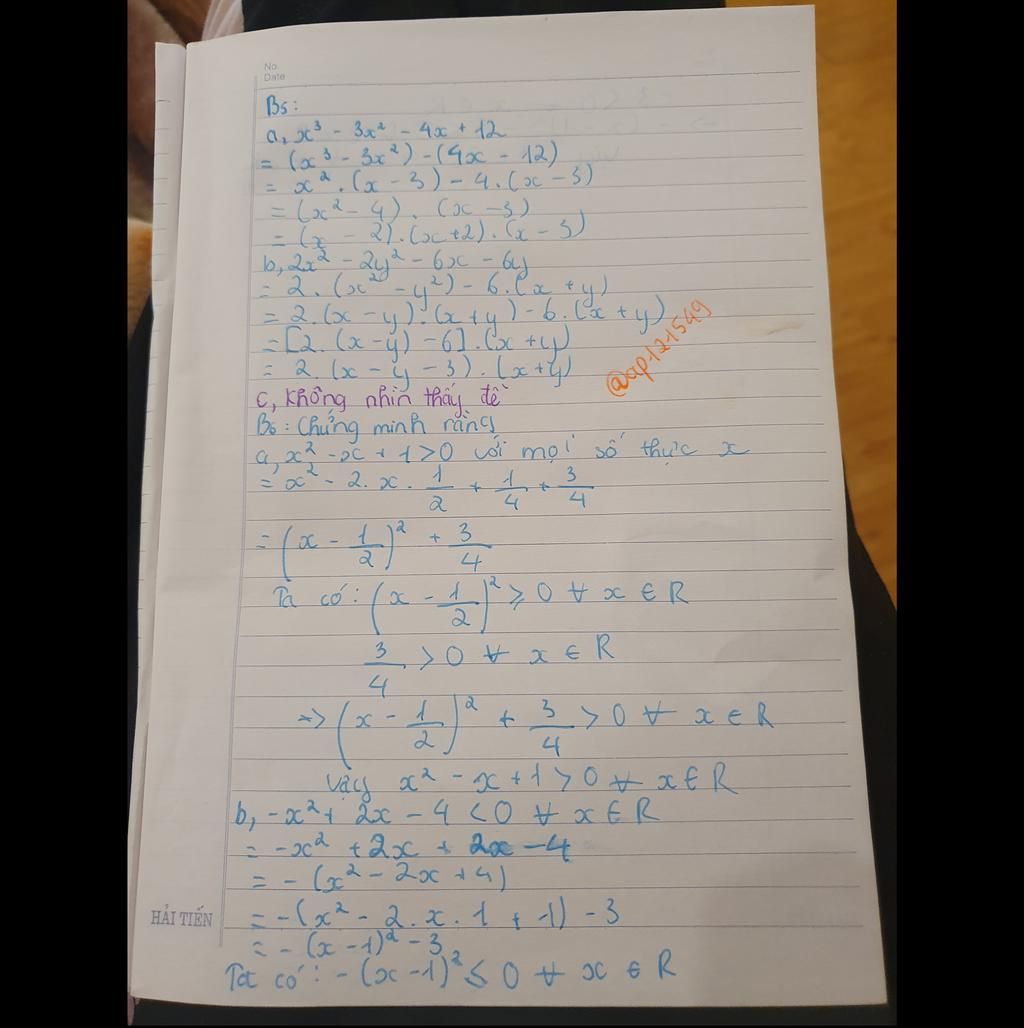 No.
Date
B5:
a, x³ - 3x² - 4x + 12
= (x³ - 3x²) - (4x - 12)
= x² . (x - 3) - 4 . (x - 3)
= (x² - 4) . (x - 3)
= (x - 2) . (x + 2) . (x - 3)
b, 2x² - 2y² - 6x - 6y
= 2 . (x² - y²) - 6 . (x + y)
= 2 . (x - y) . (x + y) - 6 . (x + y)
= [2 . (x - y) - 6] . (x + y)
= 2 . (x - y - 3) . (x + y)
@ap121549
c, Không nhìn thấy đề
B6: Chứng minh rằng
a, x² - x + 1 > 0 với mọi số thực x
= x² - 2 . x . 1/2 + 1/4 + 3/4
= (x - 1/2)² + 3/4
Ta có: (x - 1/2)² ≥ 0 ∀ x ∈ R
3/4 > 0 ∀ x ∈ R
=> (x - 1/2)² + 3/4 > 0 ∀ x ∈ R
Vậy x² - x + 1 > 0 ∀ x ∈ R
b, -x² + 2x - 4 < 0 ∀ x ∈ R
= -x² + 2x + 2x - 4
= - (x² - 2x + 4)
= - (x² - 2 . x . 1 + 1) - 3
= - (x - 1)² - 3
Ta có: - (x - 1)² ≤ 0 ∀ x ∈ R
HẢI TIẾN